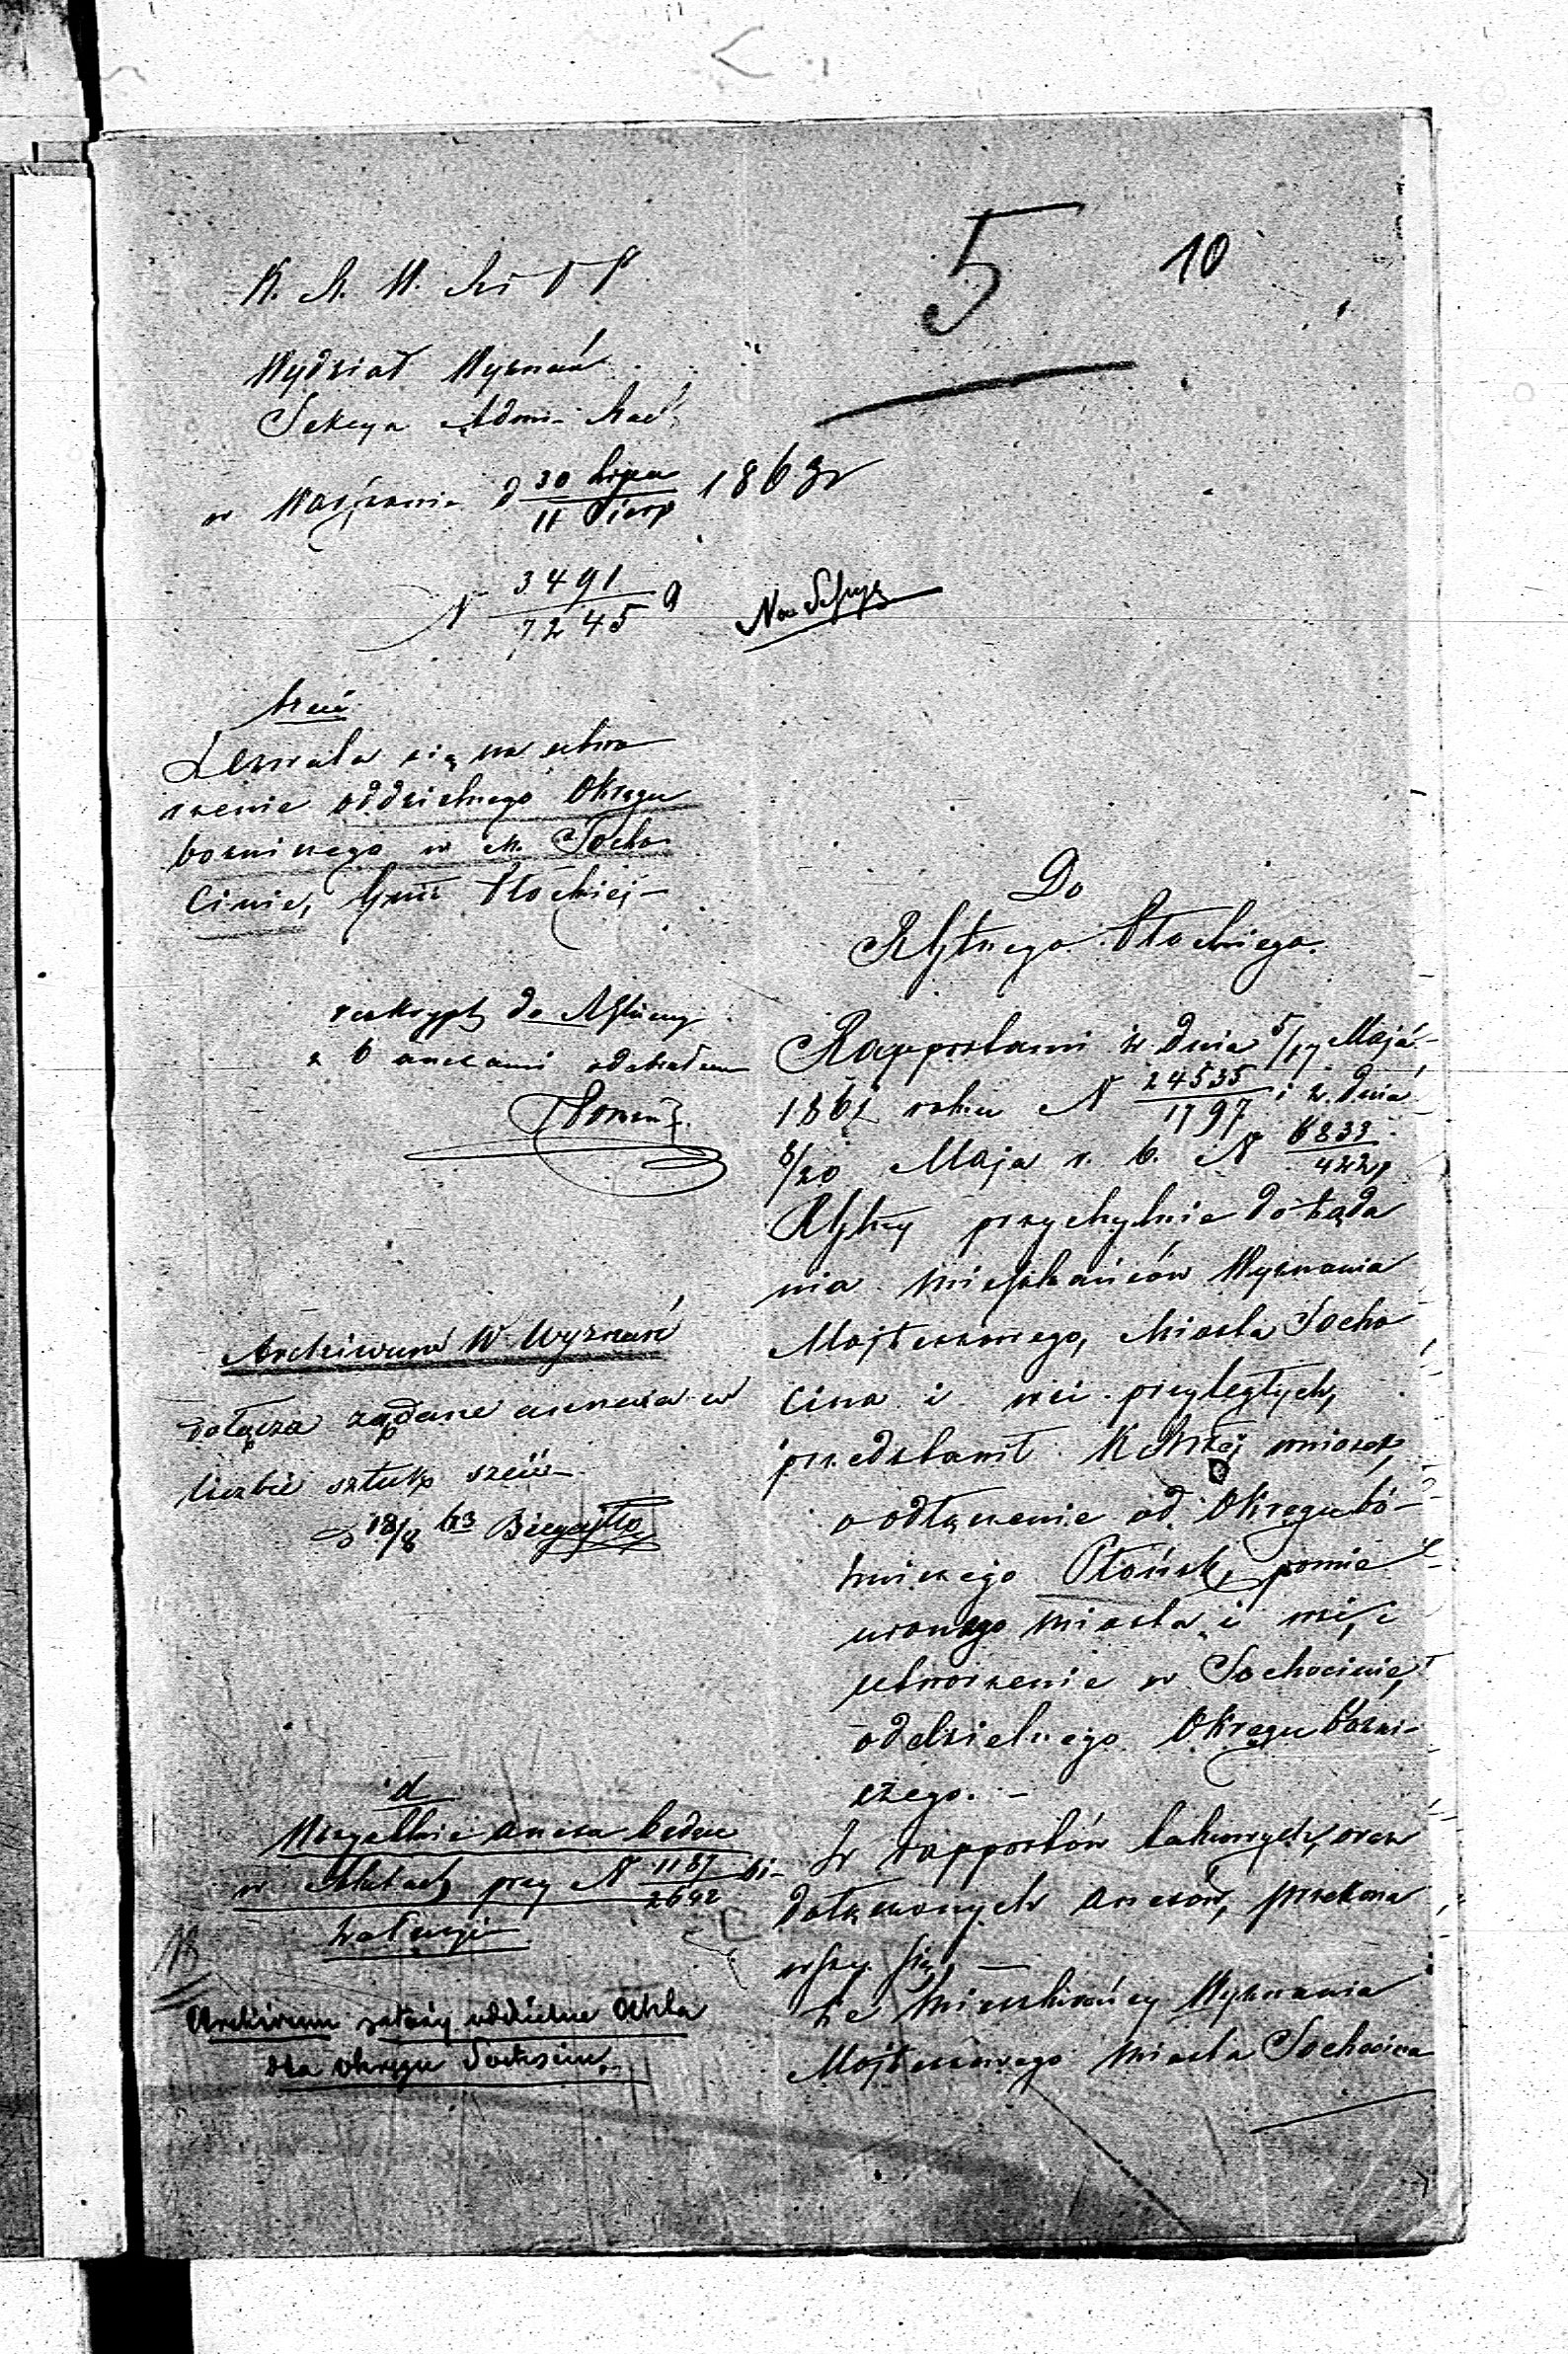 5
10
Wydział Wyznań
Sekcya Admi
w Warszawie d 30 Lipca / 11 Sierp 1863 r
N 3491 / 7245
treść
Zezwala się na utwo
rzenie oddzielnego Okręgu
bożniczego w m. Socho
cinie, Gunii Płockiej
reskrypt do
z 6 anexami odebrałem
Archiwum W. Wyznań
dołącza żądane annexa w
liczbie sztuk sześć
D 18/8 63
Wszystkie anexa będące
w Aktach przy N 1187 / 2692
Archiwum założy oddzielne Akta
dla okręgu Sochocin
Do
Płockiego.
Rapportami z dnia 5/17 Maja
186 roku N 24535 / 1797 i z dnia
8/20 Maja r. b. N 6833
przychylnie do żąda
nia mieszkańców Wyznania
Mojżeszowego, Miasta Socho
cina i wsi przyległych,
przedstawił wniosek
o odłączenie od Okręgu bó-
żniczego Płońsk, pomie
nionego miasta i wsi, i
utworzenie w Sochocinie,
oddzielnego Okręgu bożni-
czego. –
Z rapportów takowych, oraz
dołączonych anexów, przekona
wszy się, —
że Mieszkańcy Wyznania
Mojżeszowego Miasta Sochocina